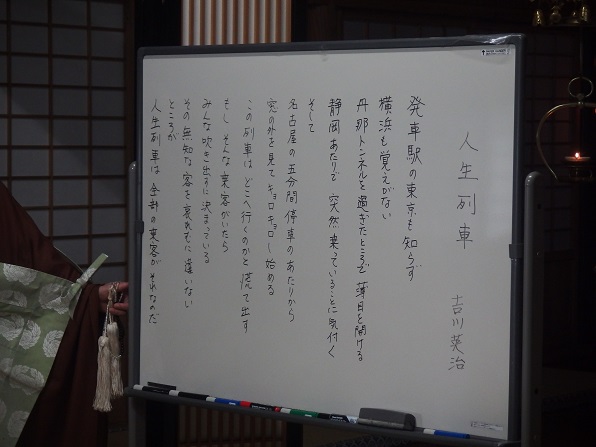 人生列車
吉川英治
発車駅の東京も知らず
横浜も覚えがない
丹那トンネルを過ぎたところで薄目を開ける
静岡あたりで突然乗っていることに気付く
そして
名古屋の五分間停車のあたりから
窓の外を見てキョロキョロし始める
この列車はどこへ行くのかと慌て出す
もしそんな乗客がいたら
みんな吹き出すに決まっている
その無知な客を哀れむに違いない
ところが
人生列車は全部の乗客がそれなのだ